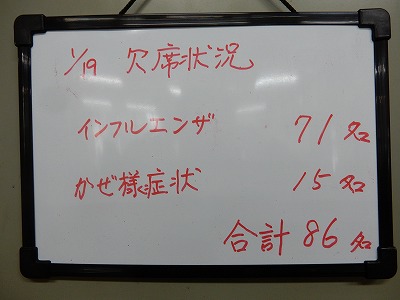 1/19 欠席状況
インフルエンザ 71名
かぜ様症状 15名
合計 86名